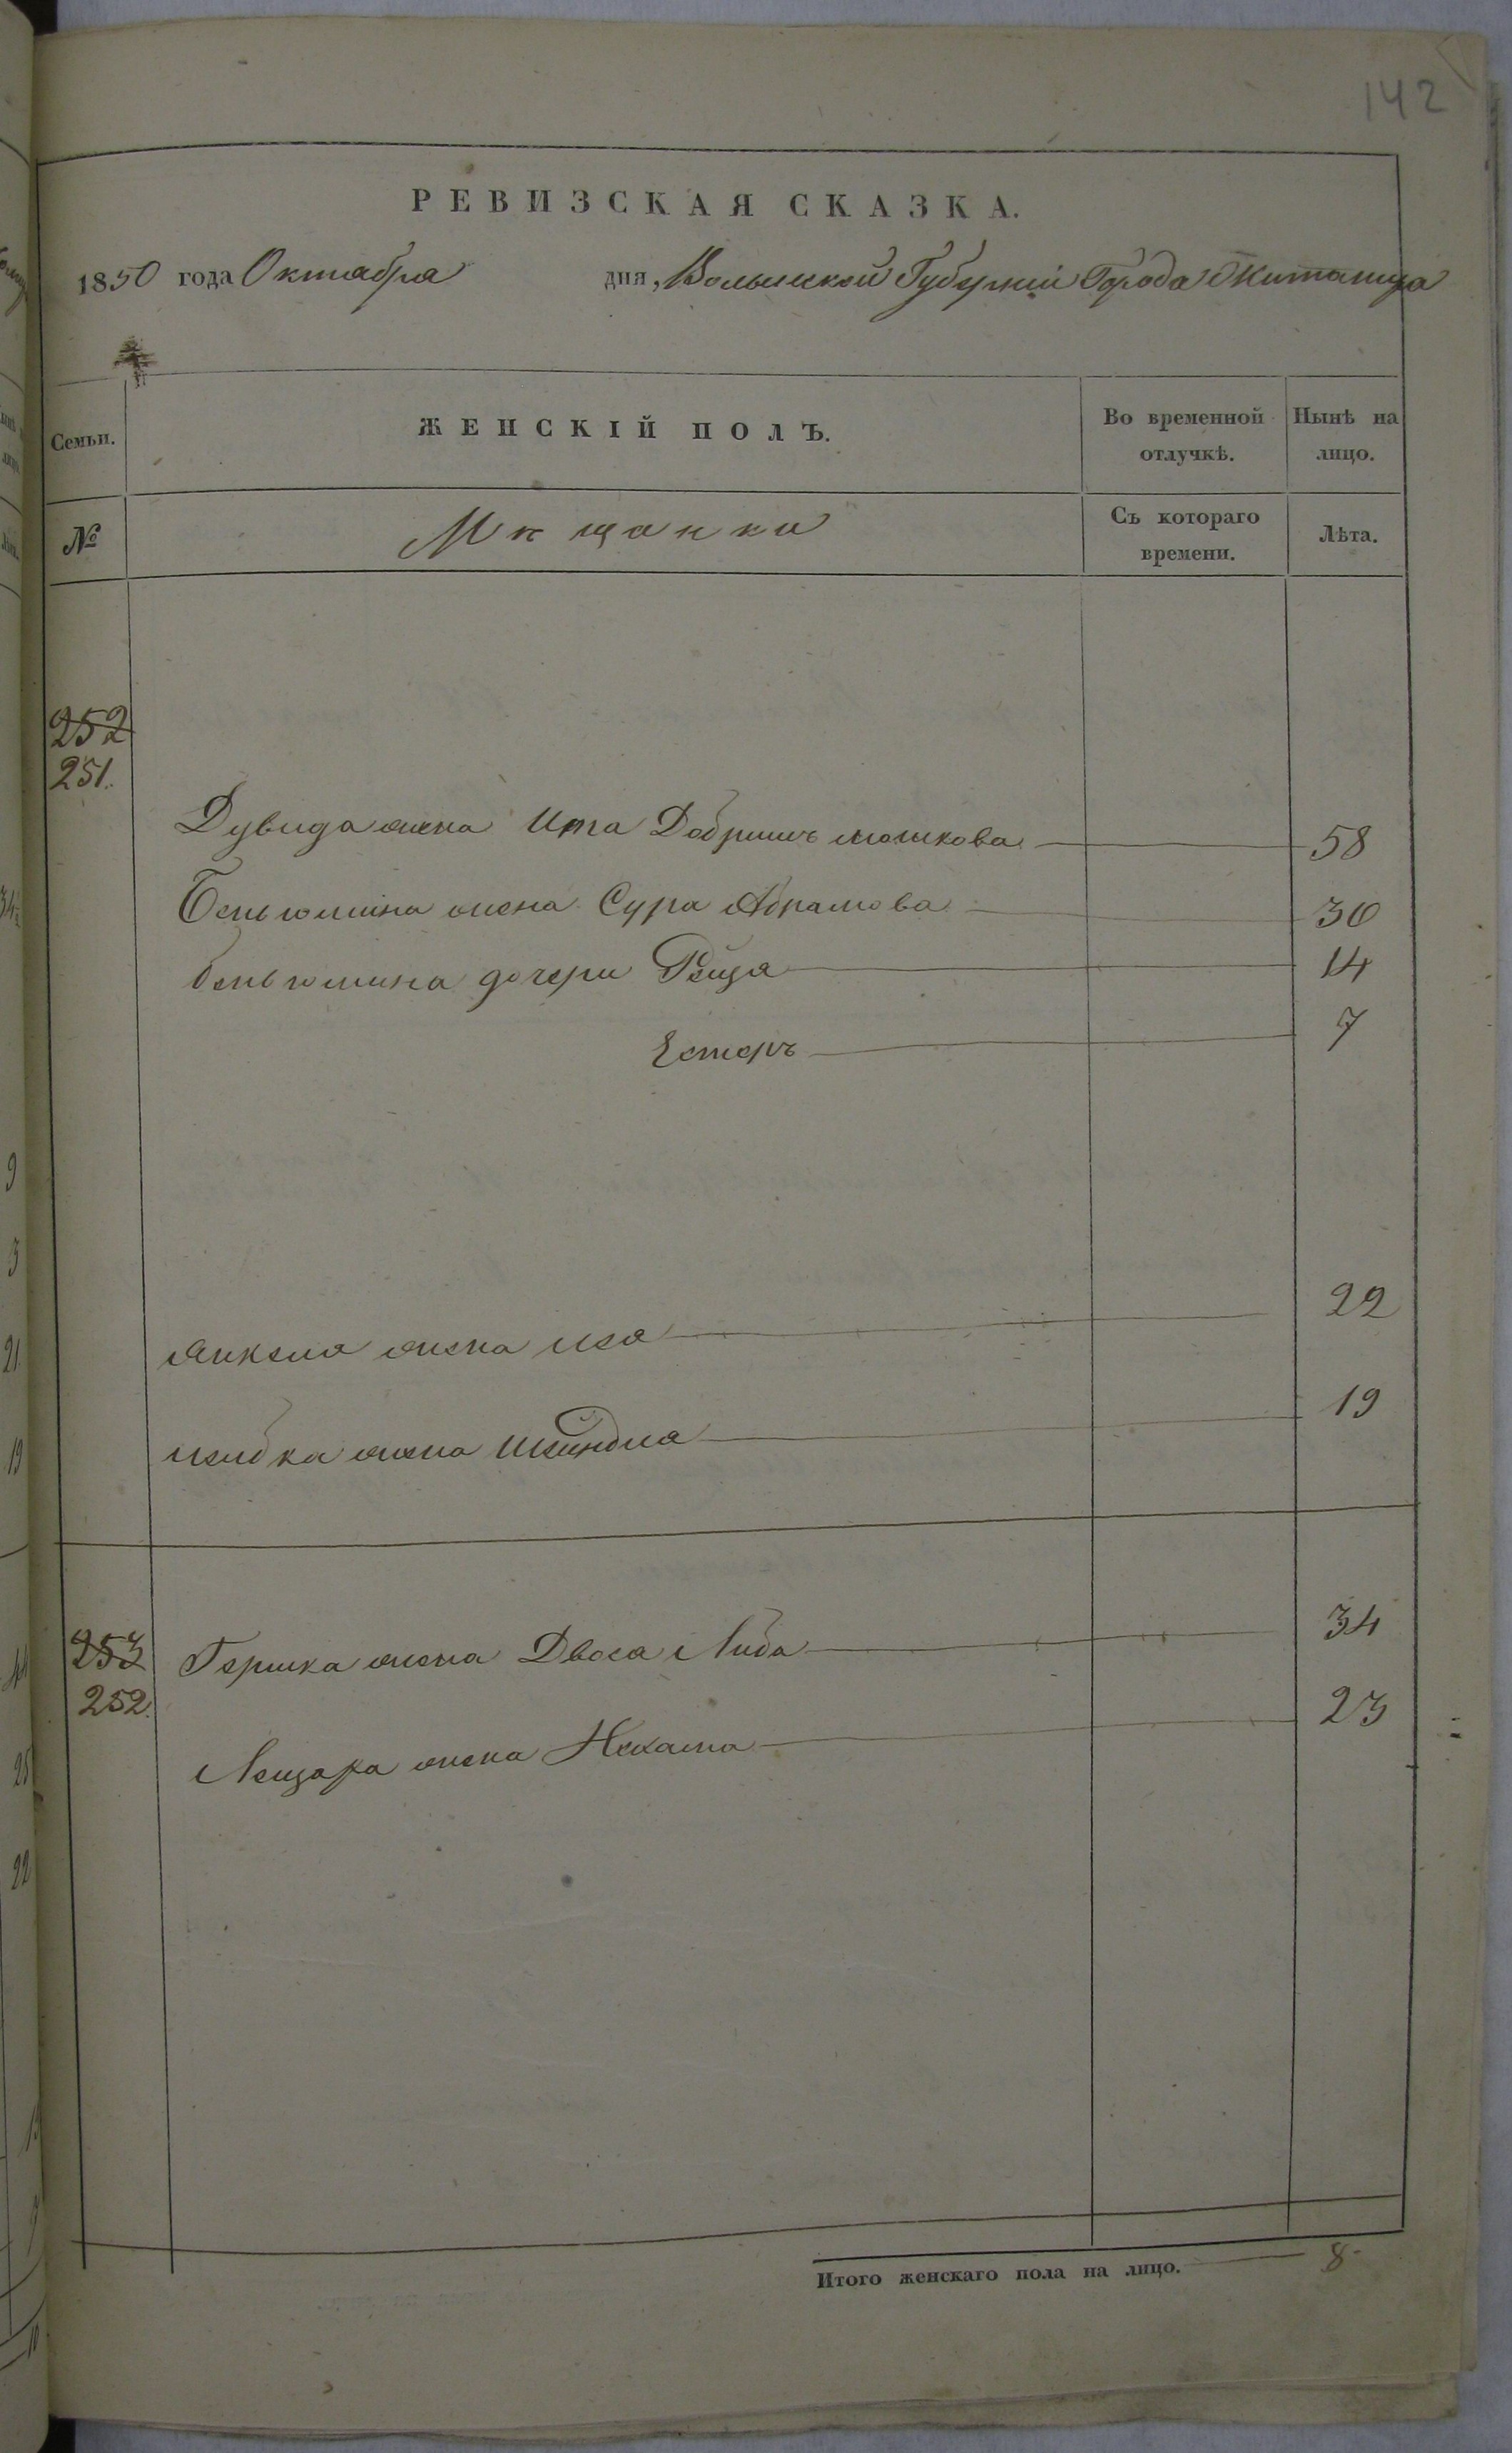 142
РЕВИЗСКАЯ СКАЗКА.
1850 года Октабра дня, Волынской Губерніи Города Житомира
Семьи. ЖЕНСКІЙ ПОЛЪ. Во временной отлучкѣ. Нынѣ на лицо.
№ Мѣщанки Съ котораго времени. Лѣта.
252
251.
Дувида жена Ита Добришъ мошкова 58
Беньюмина жена Сура Абрамова 30
беньюмина дочери Рейзя 14
Естеръ 7
Янкеля жена 22
жена Шейндля 19
253 Гершка жена Двося Либа 34
252.
Лейзара жена Нехама 23
Итого женскаго пола на лицо. 8